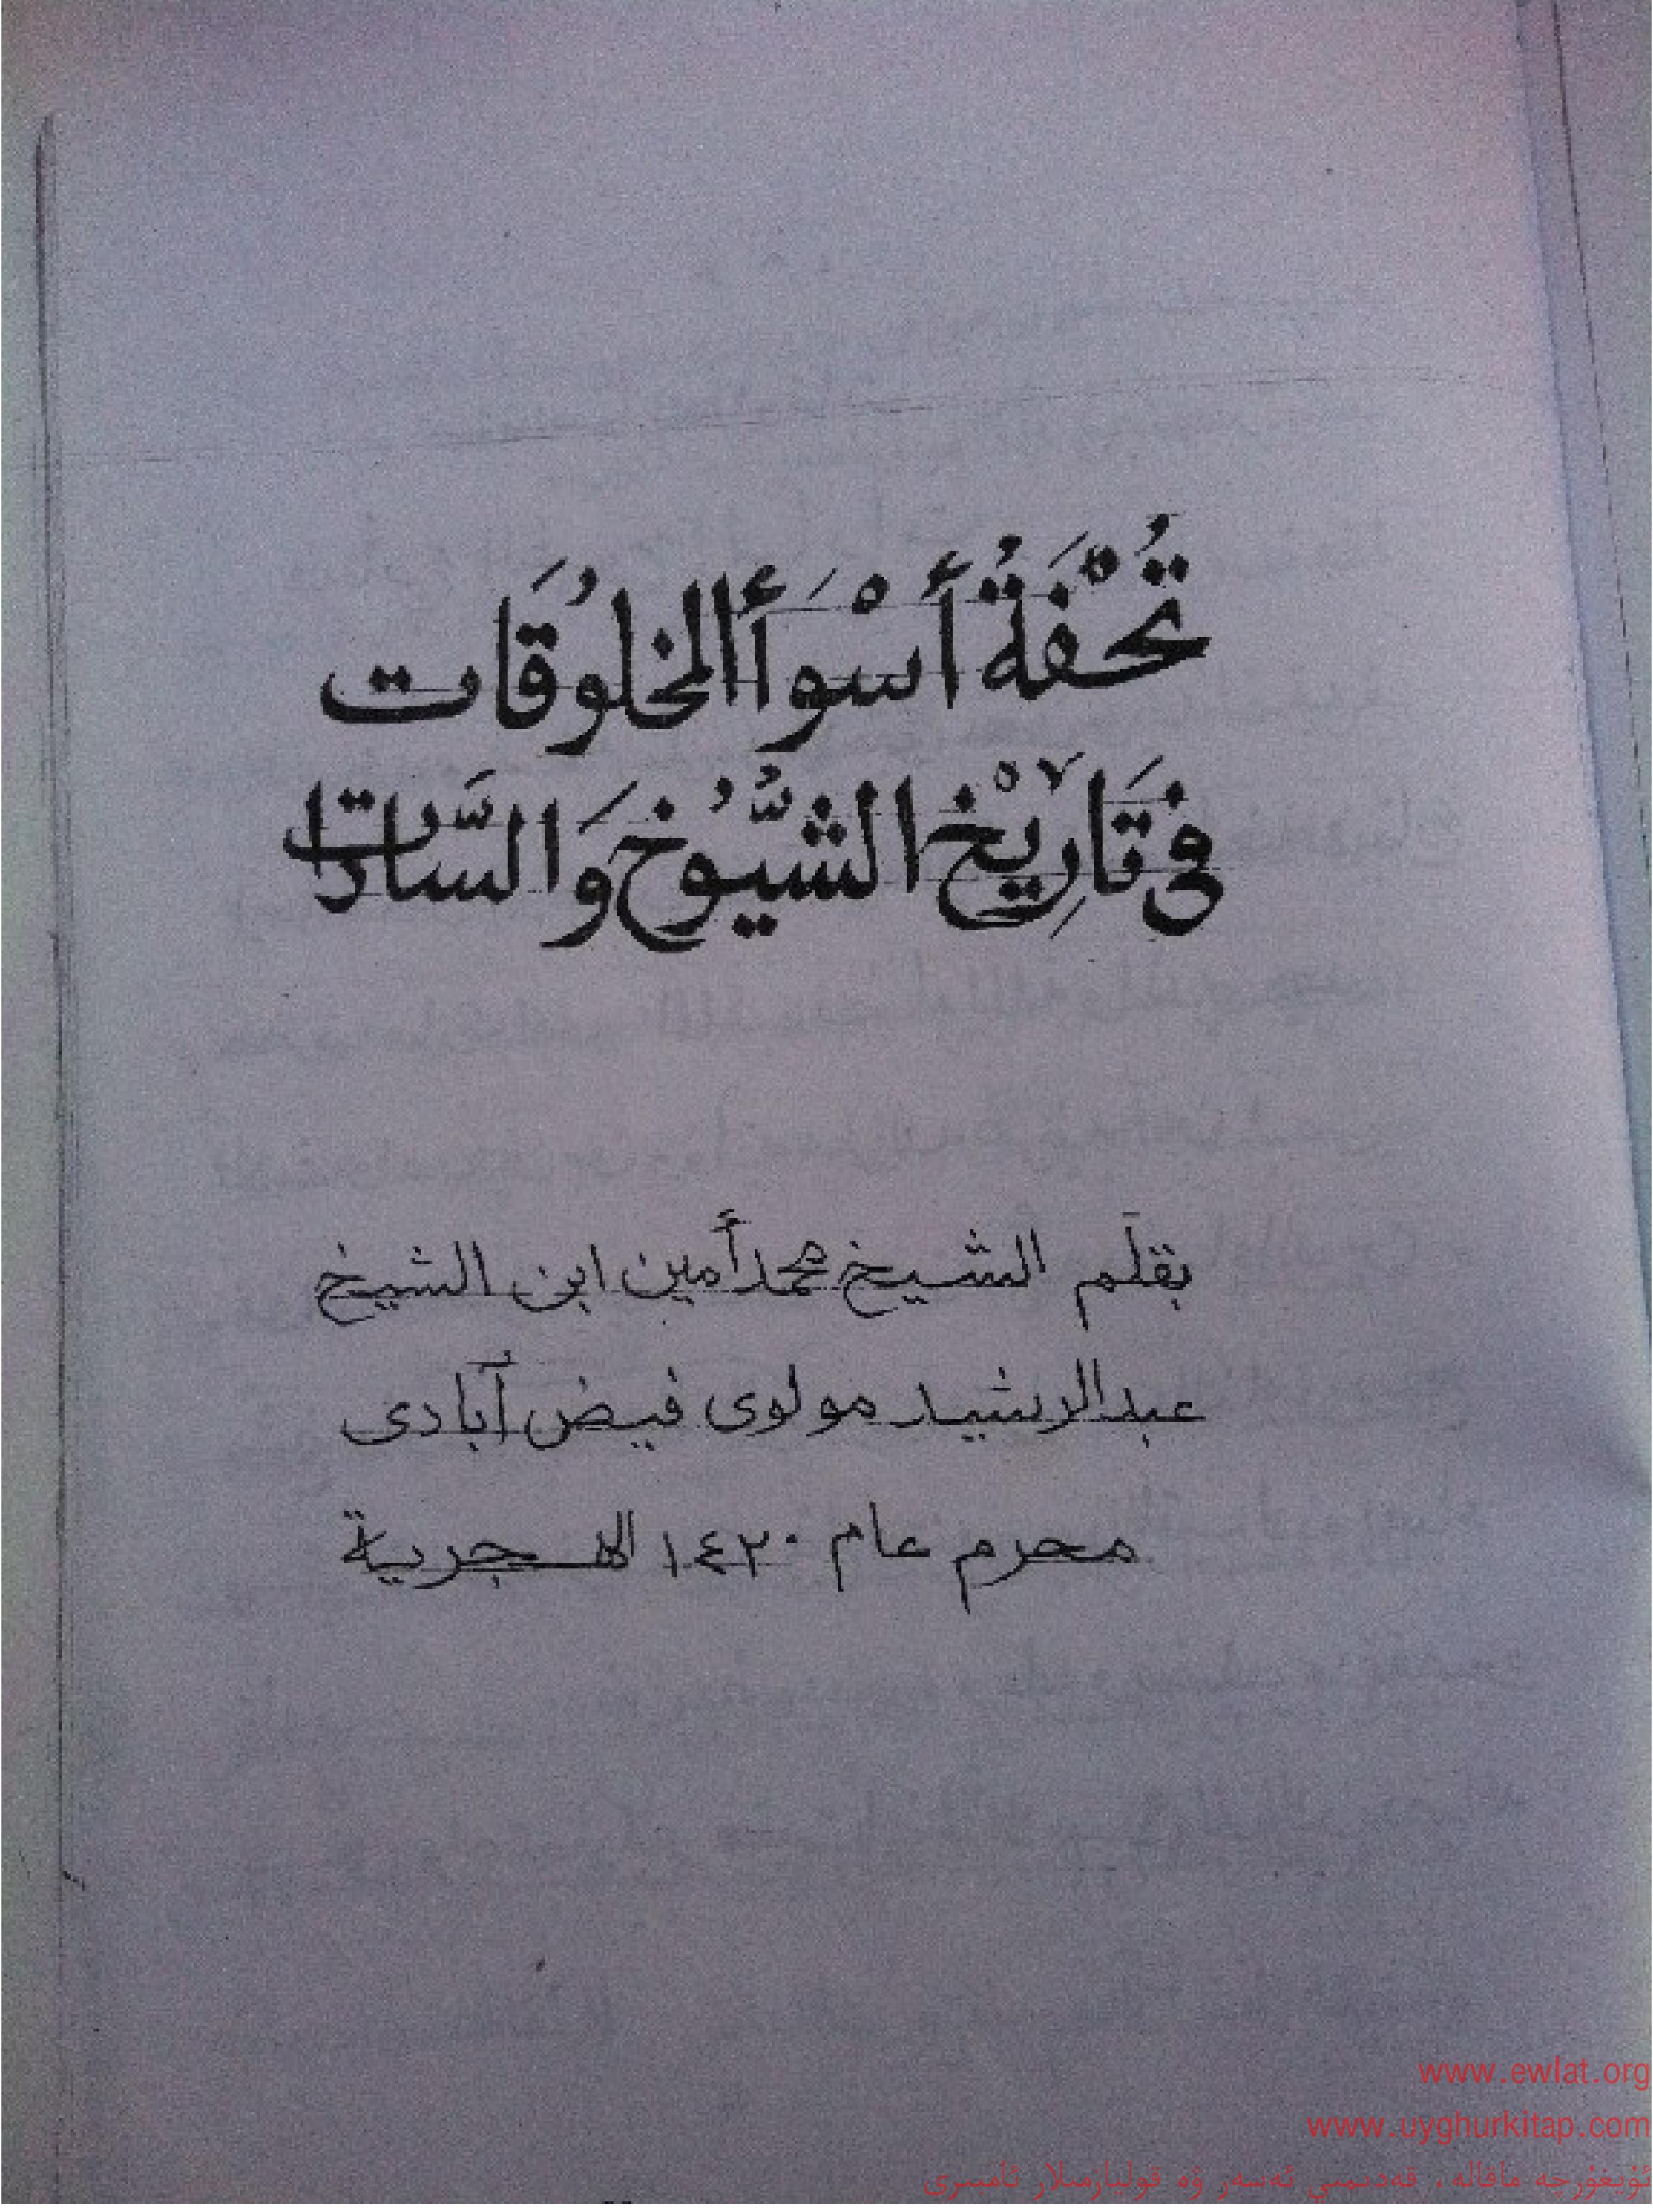 تُحْفَةُ أَسْوَأ المَخلُوقَات
فى تَارِيْخ الشُّيُوخ وَالسَّادَات
بقلم الشيخ محمد أمين ابن الشيخ
عبد الرشيد مولوى فيض آبادى
محرم عام ١٤٢٠ الهجرية
www.ewlat.org
www.uyghurkitap.com
ئۇيغۇرچە ماقالە، قەدىمىي ئەسەر ۋە قوليازمىلار ئامبىرى